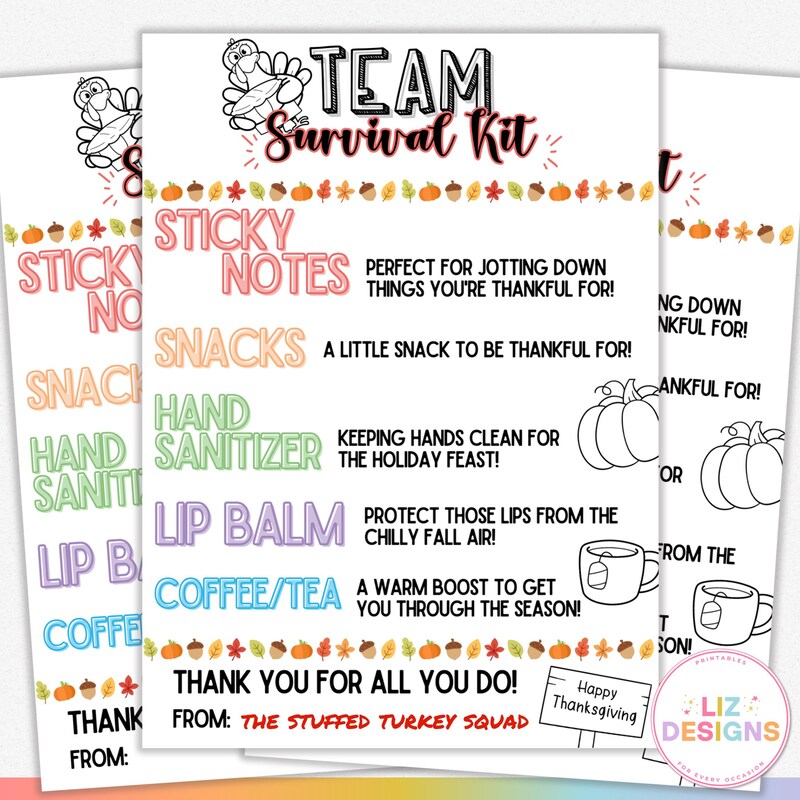 TEAM
Survival Kit
STICKY
NOTES
PERFECT FOR JOTTING DOWN
THINGS YOU'RE THANKFUL FOR!
SNACKS
A LITTLE SNACK TO BE THANKFUL FOR!
HAND
SANITIZER
KEEPING HANDS CLEAN FOR
THE HOLIDAY FEAST!
LIP BALM
PROTECT THOSE LIPS FROM THE
CHILLY FALL AIR!
COFFEE/TEA
A WARM BOOST TO GET
YOU THROUGH THE SEASON!
THANK YOU FOR ALL YOU DO!
FROM: THE STUFFED TURKEY SQUAD
Happy
Thanksgiving
STICKY
NO
SNACK
HAND
SANITI
LIP BA
COFFE
THANK
FROM:
t
NG DOWN
NKFUL FOR!
ANKFUL FOR!
OR
FROM THE
T
SON!
PRINTABLES
LIZ
DESIGNS
FOR EVERY OCCASION